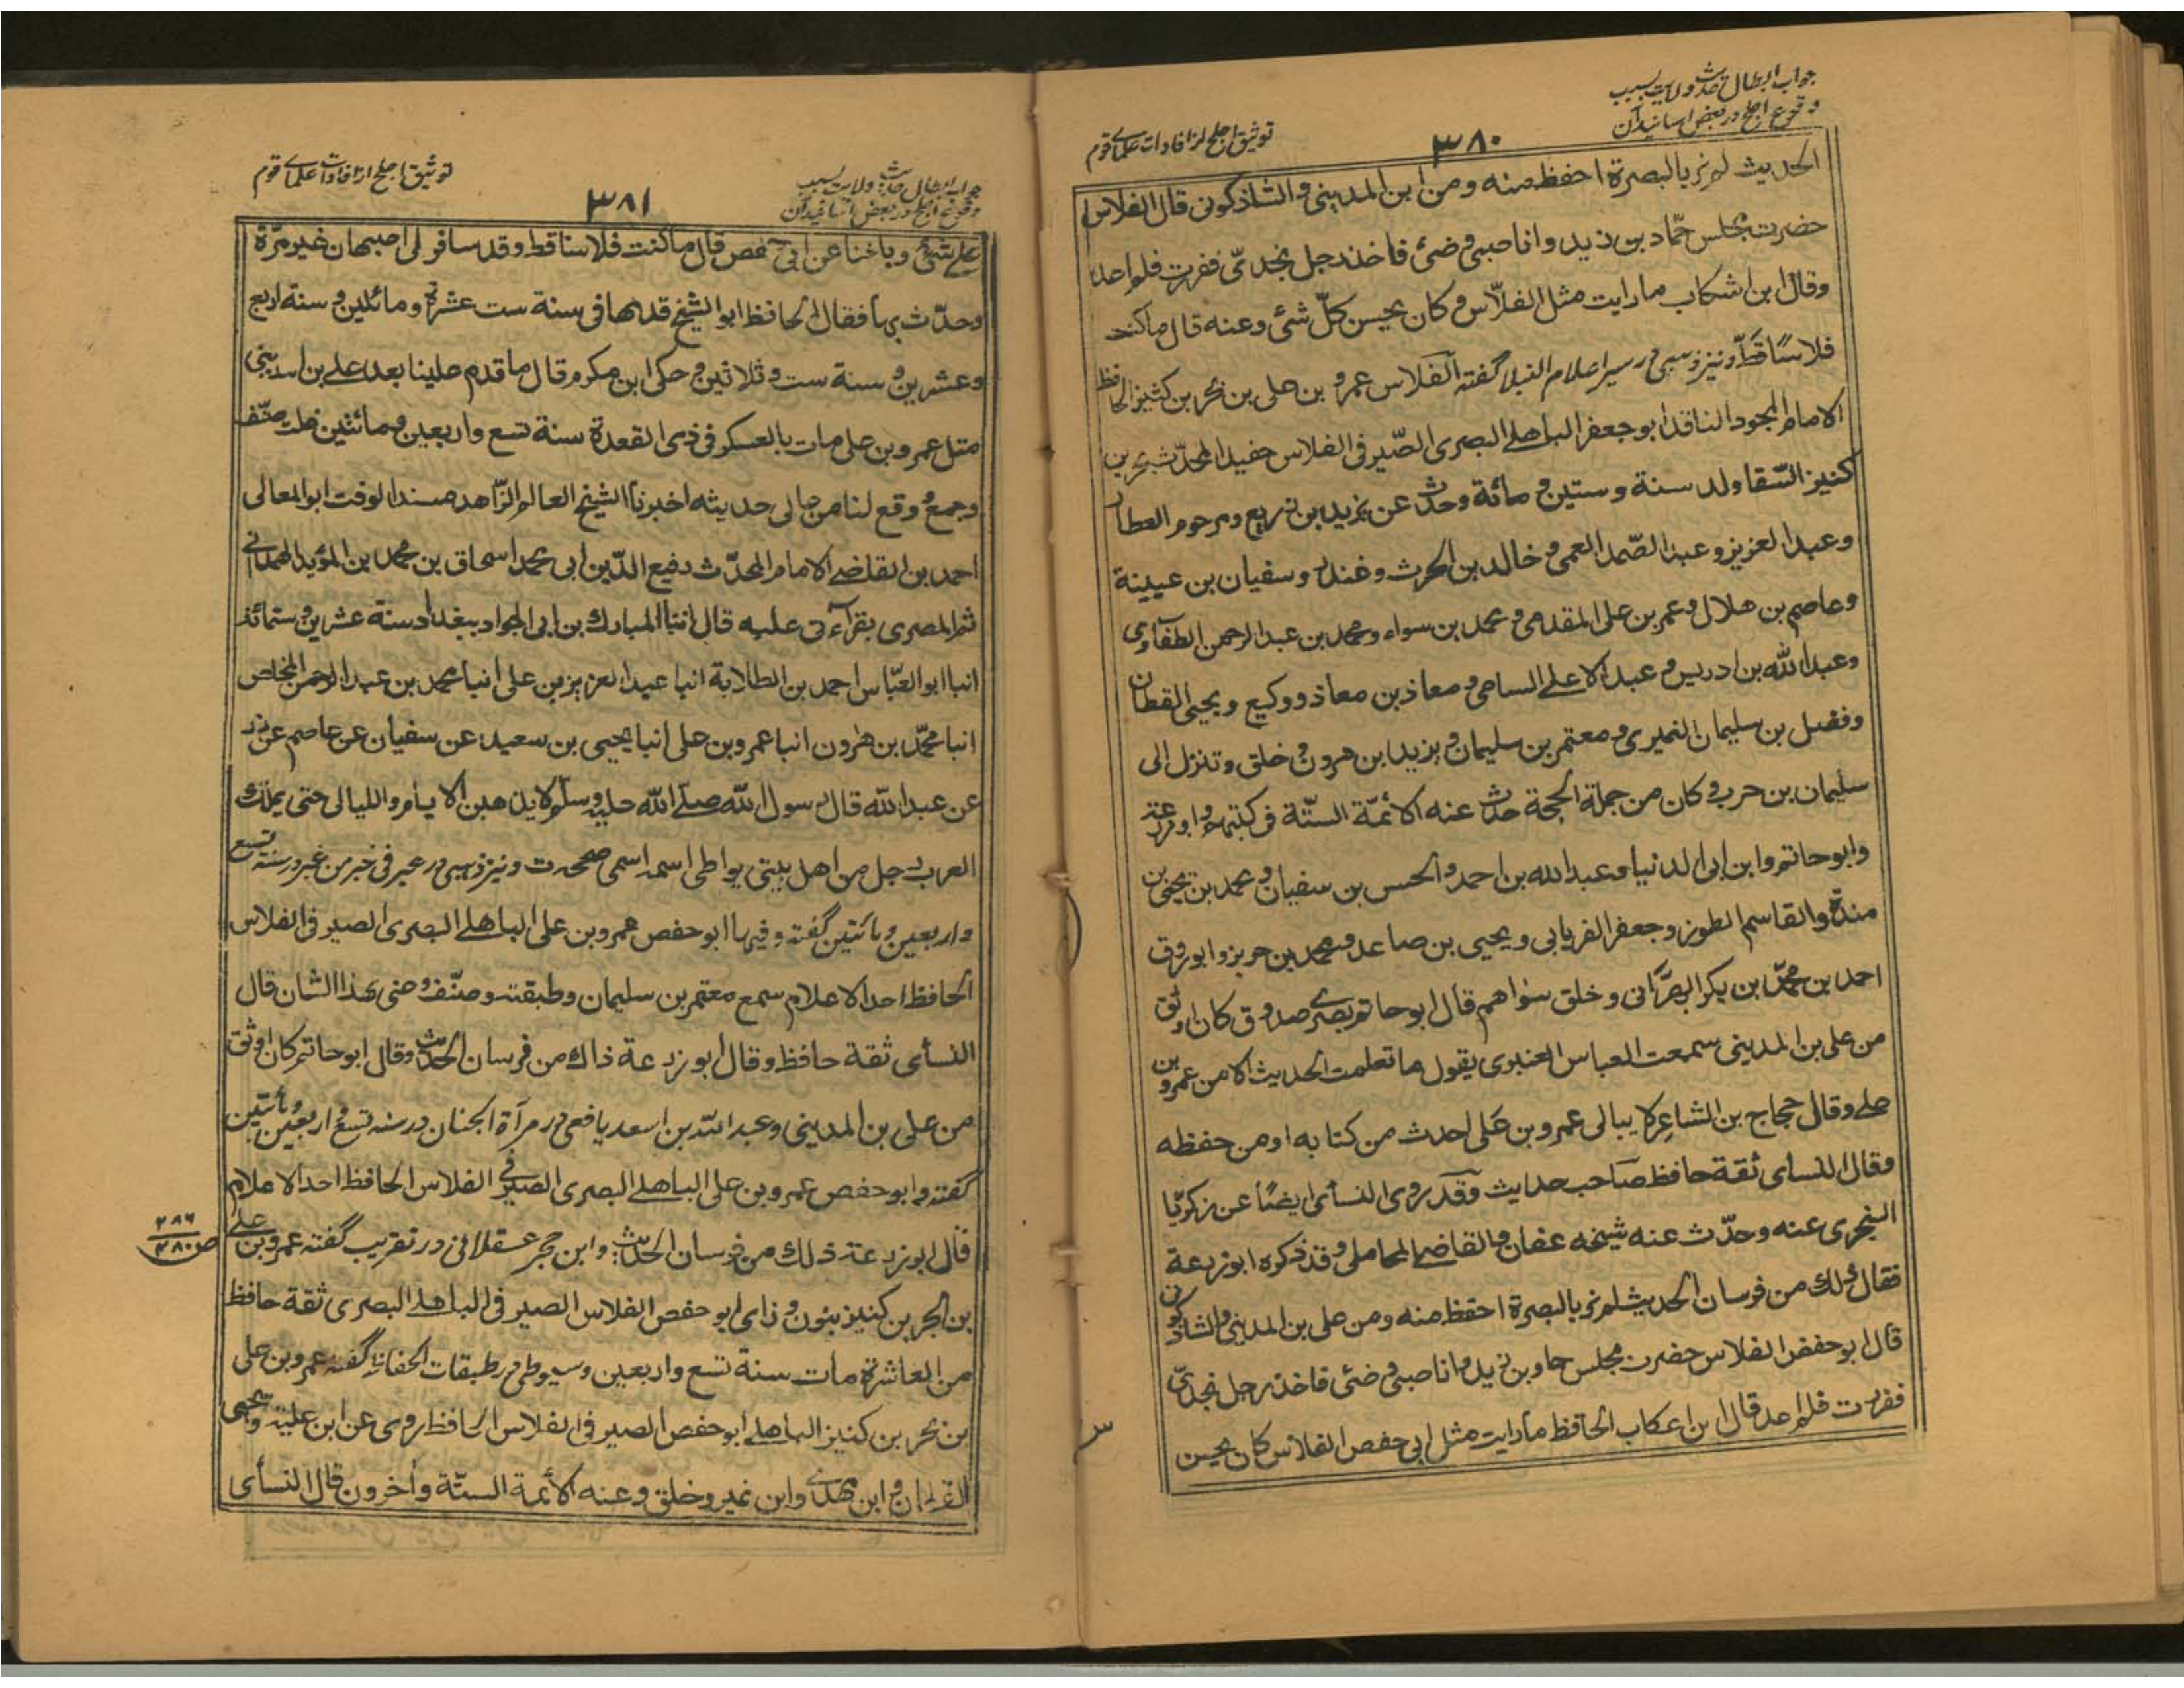 جواب ابطال حدیث ولایت بسبب
وقوع اجلح در بعض اسانید آن
۳۸۰
توثیق اجلح از افادات علمای قوم
الحدیث لم نر بالبصرة احفظ منه ومن ابن المدینی والشاذکونی قال الفلاس
حضرت مجلس حمّاد بن زید وانا صبی وضئ فاخذ رجل بخدّی ففررت فلم اعد
وقال ابن اشکاب ما رایت مثل الفلّاس وکان یحسن کلّ شئ وعنه قال ما کنت
فلاسًا قطّ ونیز ذهبی در سیر اعلام النبلا گفته الفلاس عمرو بن علی بن بحر بن کنیز الحافظ
الامام المجود الناقد ابو جعفر الباهلے البصری الصّیرفی الفلاس حفید المحدّث بحر بن
کنیز السّقا ولد سنة وستین ومائة وحدّث عن یزید بن زریع ومرحوم العطار
وعبد العزیز وعبد الصّمد العمی وخالد بن الحرث وغندر وسفیان بن عیینة
وعاصم بن هلال وعمر بن علی المقدمی ومحمد بن سواء ومحمد بن عبد الرحمن الطفاوی
وعبد الله بن ادریس وعبد الاعلے السامی ومعاذ بن معاذ ووکیع ویحیی القطان
وفضل بن سلیمان النمیری ومعتمر بن سلیمان ویزید ابن هرون وخلق وتنزل الی
سلیمان بن حرب وکان من جملة الحجة حدّث عنه الائمّة الستّة فی کتبهم وابو زرعة
وابو حاتم وابن ابی الدنیا وعبد الله بن احمد والحسن بن سفیان ومحمد بن یحیی بن
مندة والقاسم المطرز وجعفر الفریابی ویحیی بن صاعد ومحمد بن جریر وابو روق
احمد بن محمّد بن بکر الهزّانی وخلق سواهم قال ابو حاتم بصری صدوق کان اوثق
من علی بن المدینی سمعت العباس العنبری یقول ما تعلمت الحدیث الا من عمرو بن
علے وقال حجاج بن الشاعر لا یبالی عمرو بن علی احدث من کتابه او من حفظه
وقال النسای ثقة حافظ صاحب حدیث وقد روی النسای ایضًا عن زکریّا
السجزی عنه وحدّث عنه شیخه عفان والقاضی المحاملی وقد ذکره ابو زرعة
فقال ذلك من فرسان الحدیث لم نر بالبصرة احفظ منه ومن علی بن المدینی والشاذکونی
قال ابو حفص الفلاس حضرت مجلس حماد بن زید وانا صبی وضئ فاخذ رجل بخدّی
ففررت فلم اعد قال ابن اعکاب الحافظ ما رایت مثل ابی حفص الفلاس کان یحسن
جواب ابطال حدیث ولایت بسبب
وقوع اجلح در بعض اسانید آن
۳۸۱
توثیق اجلح از افادات علمای قوم
علے شئ وبلغنا عن ابی حفص قال ما کنت فلاسا قط وقد سافر الی اصبهان غیر مرّة
وحدّث بها فقال الحافظ ابو الشیخ قدمها فی سنة ست عشرة ومائتین وسنة اربع
وعشرین وسنة ست وثلاثین وحکی ابن مکرم قال ما قدم علینا بعد علے بن المدینی
مثل عمرو بن علی مات بالعسکر فی ذی القعدة سنة تسع واربعین ومائتین قلت صنّف
وجمع ووقع لنا من عالی حدیثه اخبرنا الشیخ العالم الزّاهد مسند الوقت ابو المعالی
احمد بن القاضے الامام المحدّث رفیع الدّین ابی محمد اسحاق بن محمد بن المؤید الهمدانی
ثم المصری بقرآءتی علیه قال انبأ المبارك بن ابی الجواد ببغداد سنة عشرین وستمائة
انبا ابو العبّاس احمد بن الطلایة انبا عبد العزیز بن علی انبا محمد بن عبد الرحمن المخلص
انبا محمّد بن هرون انبا عمرو بن علی انبا یحیی بن سعید عن سفیان عن عاصم عن زر
عن عبد الله قال رسول الله صلے الله علیه وسلم لا یذهبن الایام واللیالی حتی یملك
العرب رجل من اهل بیتی یواطی اسمه اسمی صححه ت ونیز ذهبی در عبر فی خبر من غبر در سنه تسع
واربعین ومائتین گفته وفیها ابو حفص عمرو بن علی الباهلے البصری الصیرفی الفلاس
الحافظ احد الاعلام سمع معتمر بن سلیمان وطبقته وصنّف وعنی بهذا الشان قال
النسای ثقة حافظ وقال ابو زرعة ذاك من فرسان الحدیث وقال ابو حاتم کان اوثق
من علی بن المدینی وعبد الله بن اسعد یافعی در مرآة الجنان در سنه تسع واربعین ومائتین
گفته وابو حفص عمرو بن علی الباهلے البصری الصیرفی الفلاس الحافظ احد الاعلام
قال ابو زرعة ذلك من فرسان الحدیث وابن حجر عسقلانی در تقریب گفته عمرو بن علی
بن بحر بن کنیز بنون وزای ابو حفص الفلاس الصیرفی الباهلے البصری ثقة حافظ
من العاشرة مات سنة تسع واربعین وسیوطی در طبقات الحفاظ گفته عمرو بن علی
بن بحر بن کنیز الباهلے ابو حفص الصیرفی الفلاس الحافظ روی عن ابن علیة ویحیی
القطان وابن مهدی وابن نمیر وخلق وعنه الائمة الستّة وآخرون قال النسأی